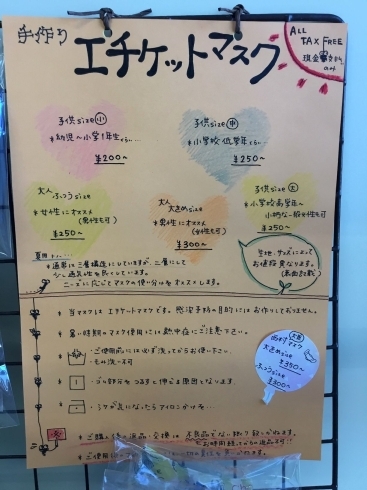 手作り
エチケットマスク
ALL
TAX FREE
現金
のみ
子供size 小
*幼児〜小学1年生くらい…
¥200〜
子供size 中
*小学校低学年くらい…
¥250〜
大人
ふつうsize
*女性にオススメ
(男性も可)
¥250〜
大人
大きめsize
*男性にオススメ
(女性も可)
¥300〜
子供size 大
*小学校高学年〜
小柄な一般女性も可
¥250〜
生地・サイズによって
お値段異なります。
夏用
*通常は三層構造にしていますが、二層にして
少し通気性も良くしています。
ニーズに応じてマスクの使い分けをオススメします。
*当マスクはエチケットマスクです。感染予防の目的にはお作りしておりません。
*暑い時期のマスク使用には熱中症にご注意下さい。
*ご使用前には必ず洗ってからお使い下さい。
もみ洗い可
*ゴム部分をつるすと伸びる原因となります。
*シワが気になったらアイロンがけを…
西村マスク
大きめsize
¥350〜
ふつうsize
¥300〜
*ご購入後の返品・交換は不良品でない限り
*ご使用